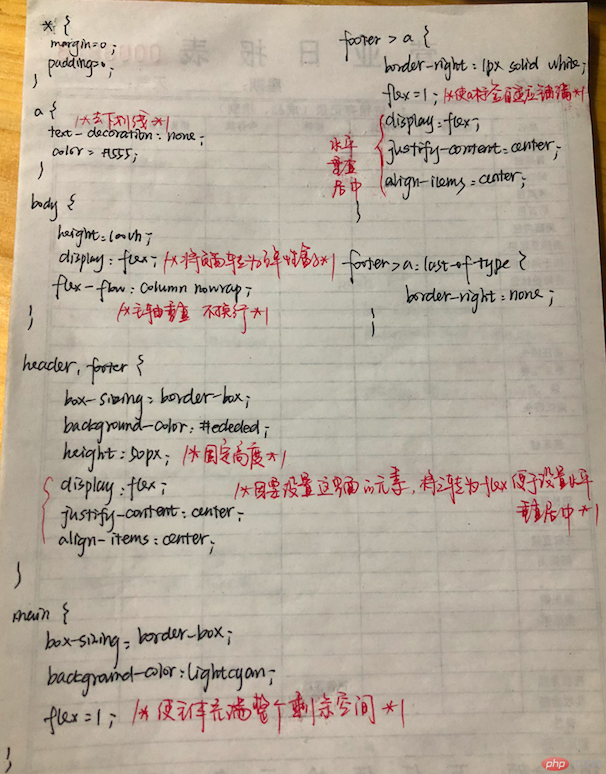 * {
margin=0;
padding=0;
}
a {
/*去下划线*/
text-decoration: none;
color = #555;
}
body {
height: 100vh;
display: flex; /*将页面转为弹性盒子*/
flex-flow: column nowrap;
/*主轴垂直 不换行*/
}
header, footer {
box-sizing: border-box;
background-color: #ededed;
height: 50px; /*固定高度*/
display: flex; /*因要设置这里面的元素,将之转为flex便于设置水平
justify-content: center; 垂直居中*/
align-items: center;
}
main {
box-sizing: border-box;
background-color: lightcyan;
flex=1; /*使主体充满整个剩余空间*/
}
footer > a {
border-right: 1px solid white;
flex=1; /*使a标签自适应铺满*/
display: flex;
水平
垂直
居中
justify-content: center;
align-items: center;
}
footer > a:last-of-type {
border-right: none;
}
营业日报表
php